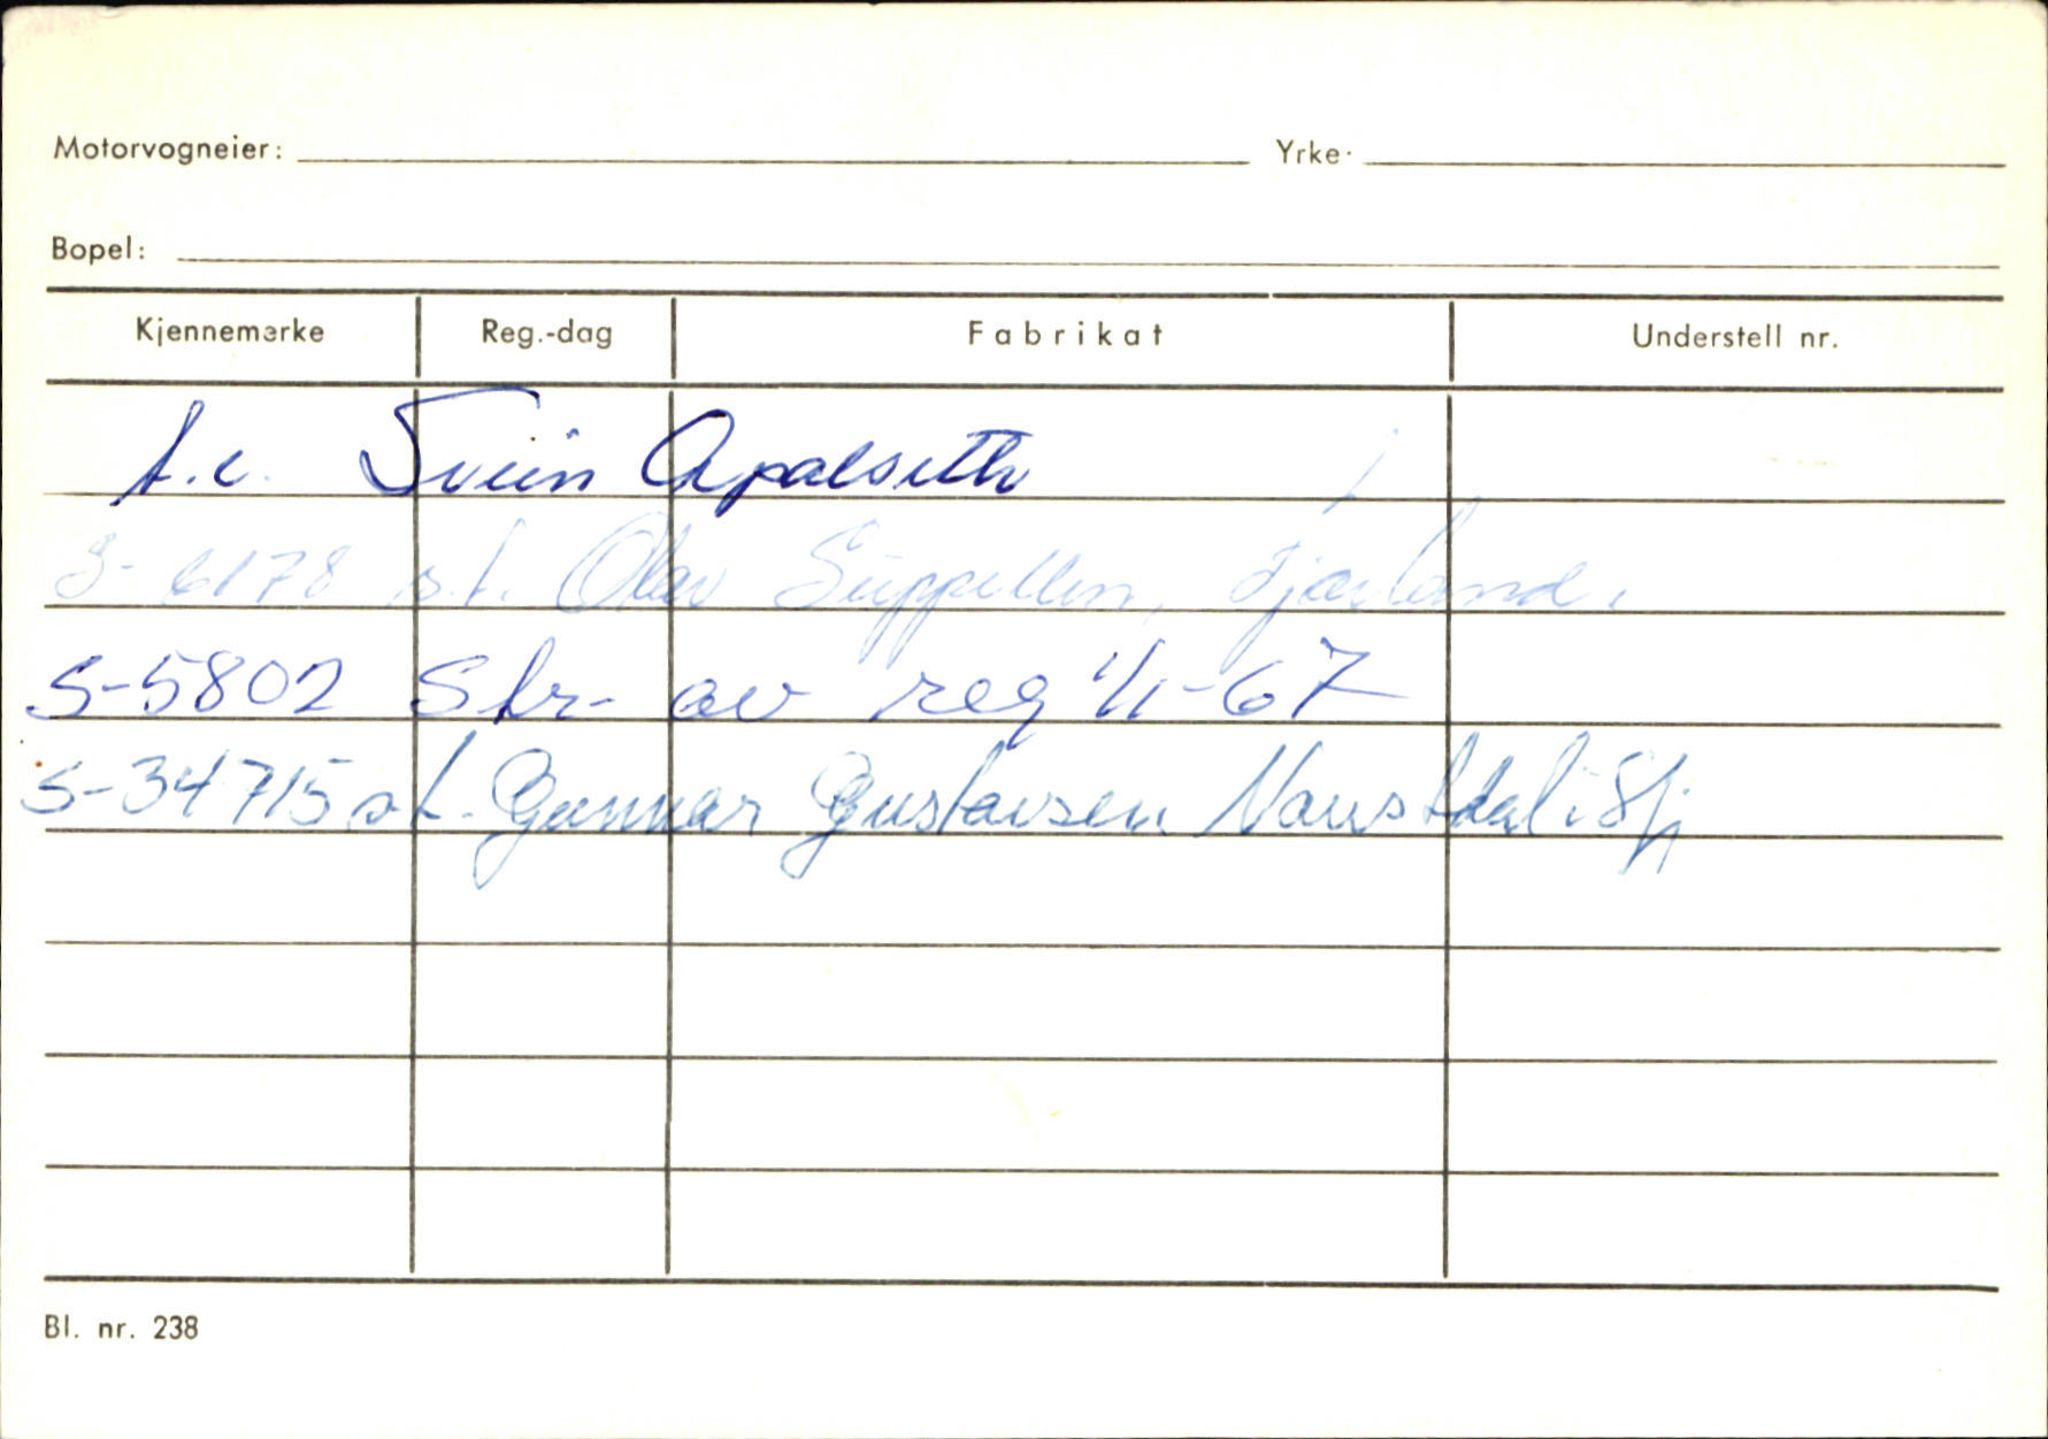 Motorvogneier: Yrke·
Bopel:
Kjennemerke Reg.-dag Fabrikat Understell nr.
Svein Apalseth
S-6178 s.t. Olav Suppellen, Fjærland.
S-5802 Str- av reg 1/1-67
S-34715 s.t. Gunnar Gustavsen Naustdal i Sfj
Bl. nr. 238